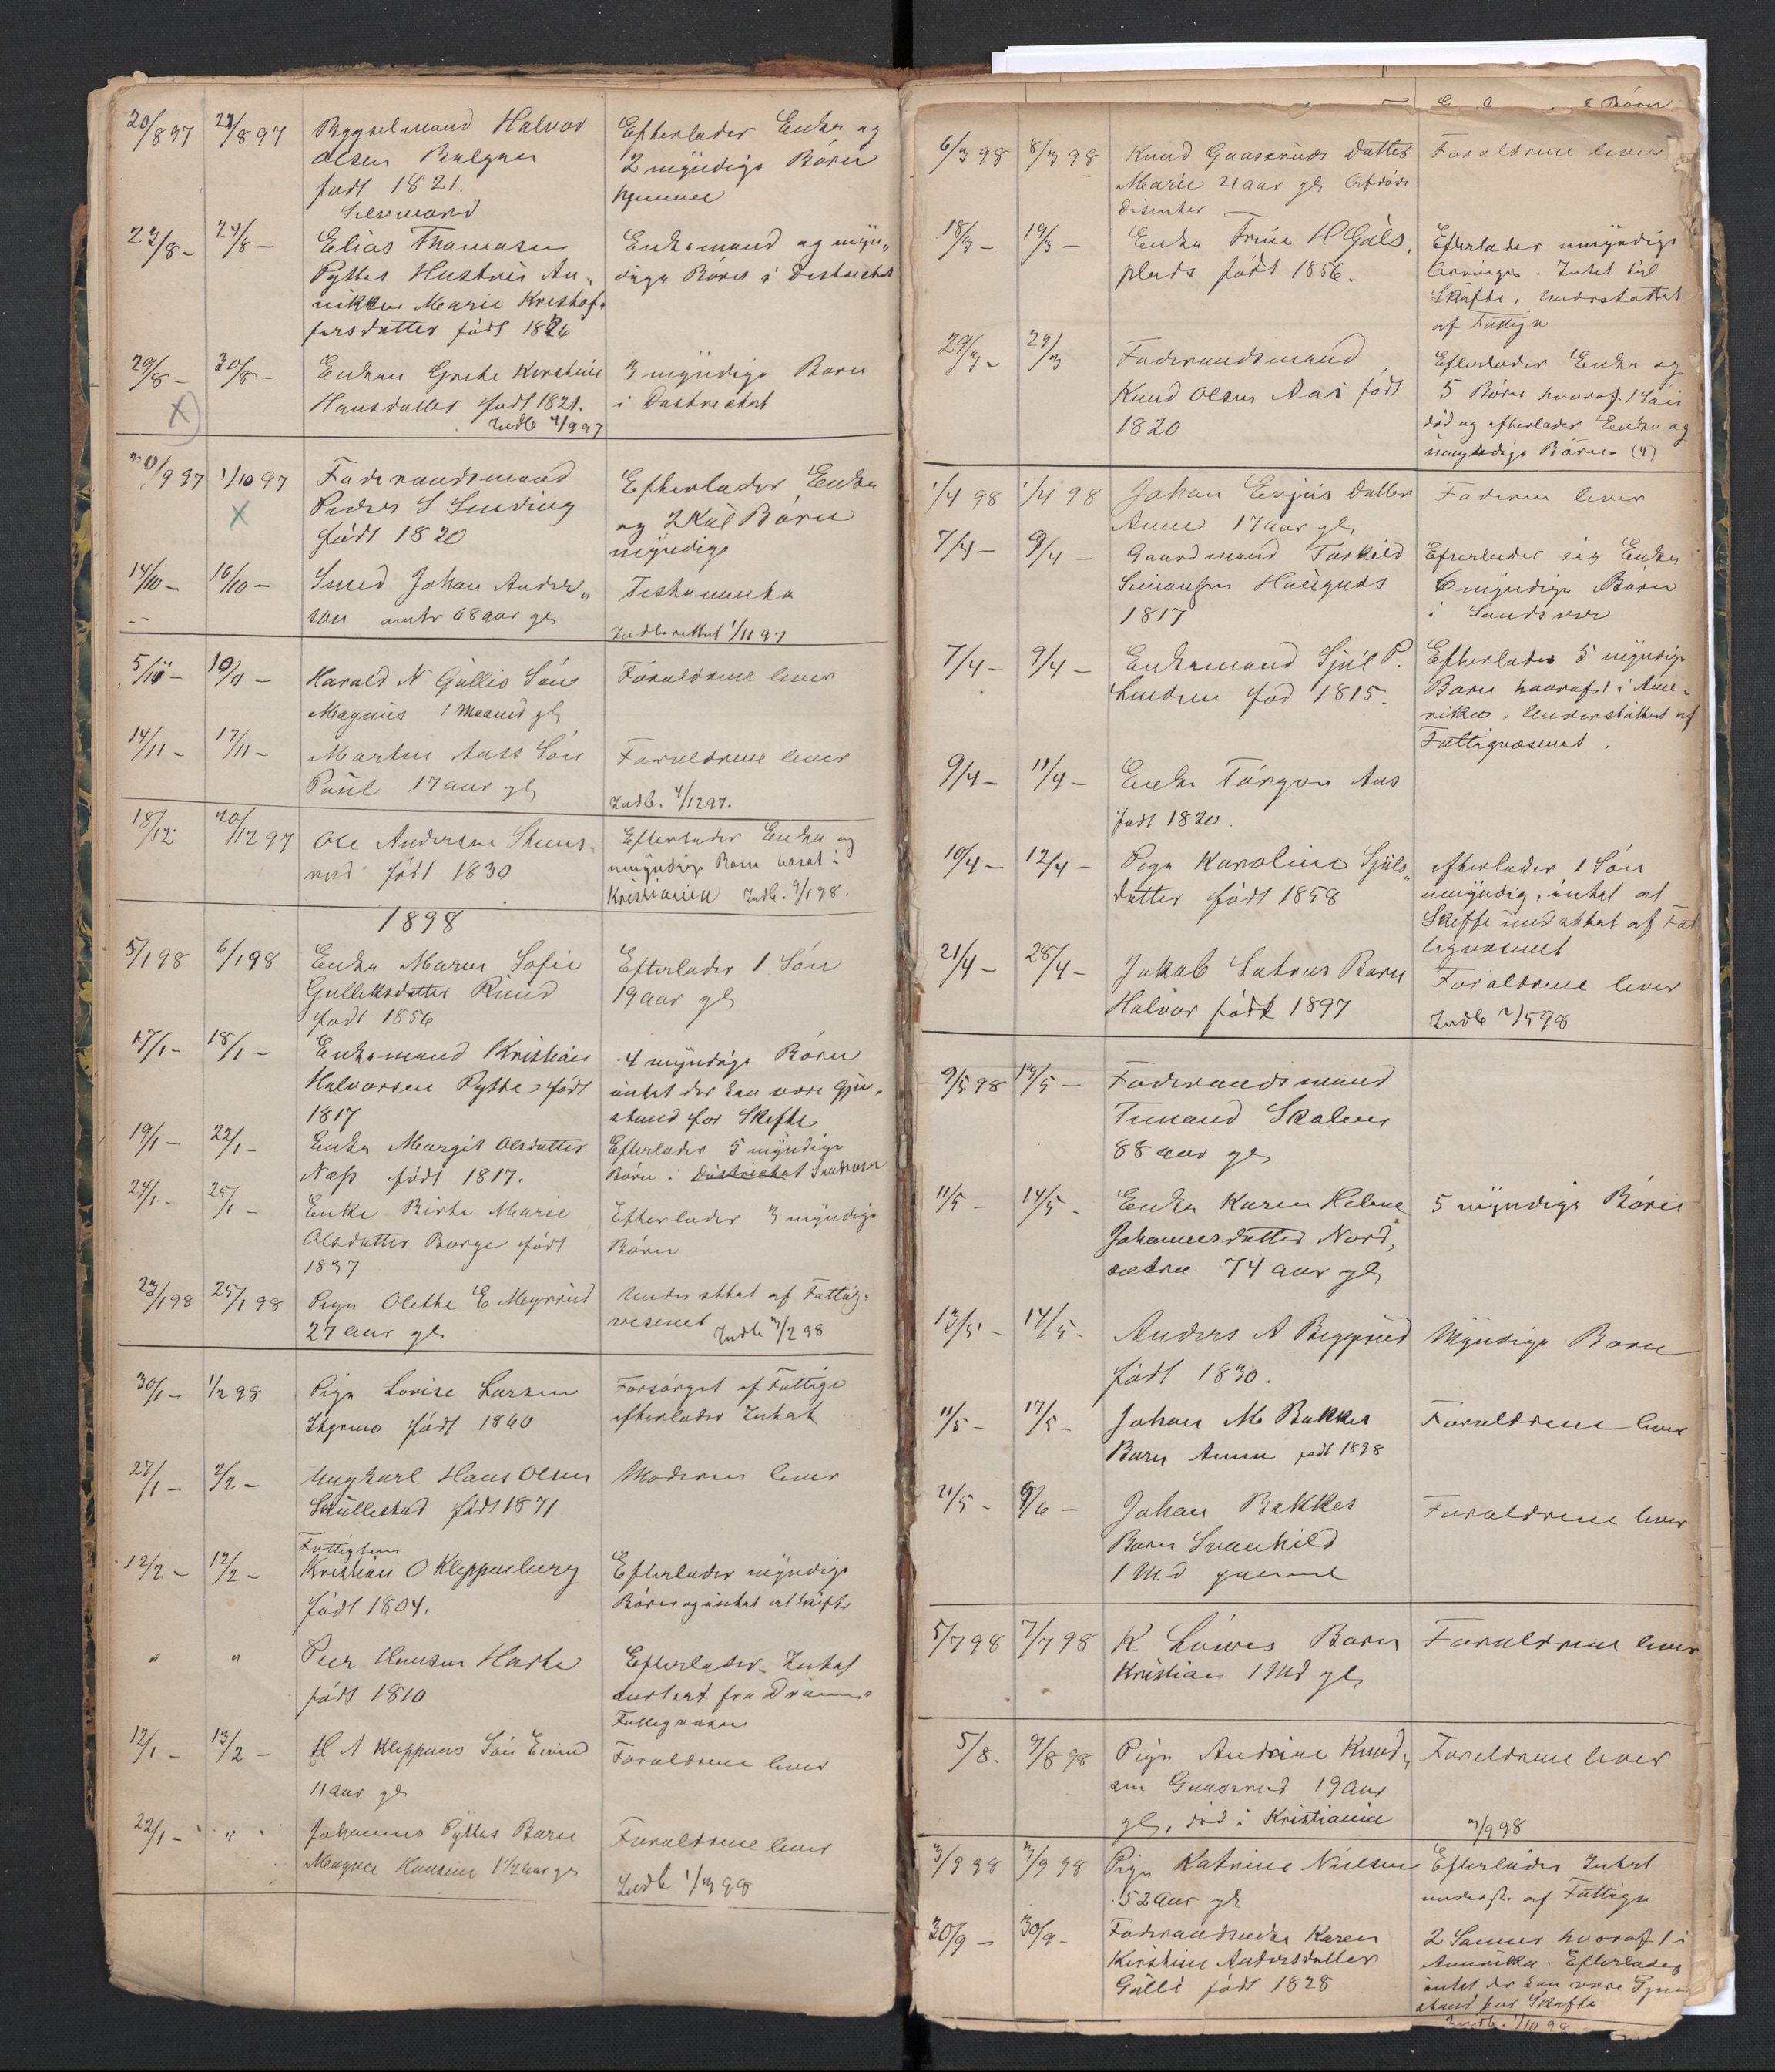 20/8 97 22/8 97 Bygselmand Halvor Efterlader Enke og
Olsen Bulgan 2 myndige Børn
født 1821. hjemme
Selvmord
23/8 - 24/8 - Elias Thomasen Enkemand og myn-
Pyttes Hustru An- dige Børn i Distriktet
nikken Marie Kristof-
fersdatter født 1826
29/8 - 30/8 - Enken Grete Kirstine 3 myndige Børn
Hansdatter født 1821. i Distriktet
X Indb 4/9 97
30/9 97 1/10 97 Føderaadsmand Efterlader Enke
X Peder S og 2 Kul Børn
født 1820 myndige
14/10 - 16/10 - Smed Johan Ander- Testamente
sen omtr 68 aar gl Indberettet 1/11 97
5/11 - 10/11 - Harald N Gullis Søn Forældrene lever
Magnus 1 Maaned gl
14/11 - 17/11 - Morten Aass Søn Forældrene lever
Paul 17 aar gl Indb. 4/12 97.
18/12 20/12 97 Ole Andersen Stens- Efterlader Enke og
rud født 1830 umyndige Børn bosat i
Kristiania Indb. 9/1 98.
1898
5/1 98 6/1 98 Enke Maren Sofie Efterlader 1 Søn
Gulleksdatter Ruud 19 aar gl
født 1856
17/1 - 18/1 - Enkemand Kristian 4 myndige Børn
Halvorsen Pytte født intet der kan være Gjen-
1817 stand for Skifte
19/1 - 22/1 - Enke Margit Olsdatter Efterlader 5 myndige
Næss født 1817. Børn i Distriktet Sandsvær
24/1 - 25/1 - Enke Birte Marie Efterlader 3 myndige
Olsdatter Borge født Børn
1837
23/1 98 25/1 98 Pige Olette E Myrrud Understøttet af Fattig-
27 aar gl vesenet Indb 3/2 98
30/1 - 1/2 98 Pige Lovise Larsen Forsørget af Fattigv
født 1860 efterlader Intet
27/1 - 2/2 - Ungkarl Hans Olsen Moderen lever
Skullestad født 1871
Fattiglem
12/2 - 12/2 - Kristian O Kleppenberg Efterlader myndige
født 1804. Børn og intet at skifte
" " Peer Hansen født 1810 Efterlader Intet
fra Drammens
Fattigvæsen
12/1 - 13/2 - H A Kleppens Søn Eivind Forældrene lever
11 aar gl
22/1 - " Johannes Pyttes Barn Forældrene lever
Magna Hansine 1 1/2 aar gl Indb 1/3 98
Børn
6/3 98 8/3 98 Knud Gaaseruds Datter Forældrene lever
Marie 21 aar gl
Disenter
18/3 - 19/3 - Enke Trine H Gåls- Efterlader umyndige
plads født 1856. Arvinger. Intet til
Skifte, understøttet
af Fattigv
29/3 - 29/3 Føderaadsmand Efterlader Enke og
Knud Olsen Aas født 5 Børn hvoraf 1 Søn
1820 død og efterlader Enke og
umyndige Børn (4)
1/4 98 1/4 98 Johan Datter Faderen lever
Anne 17 aar gl
7/4 - 9/4 - Gaardmand Torkild Efterlader sig Enke
Simonsen 6 myndige Børn
1817 i Sandsvær
7/4 - 9/4 - Enkemand Sjul P. Efterlader 5 myndige
Lindren fød 1815 - Børn hvoraf 1 i Ame-
rika. Understøttet af
Fattigvæsenet.
9/4 - 11/4 - Enke Torgon Aas
født 1820.
10/4 - 12/4 - Pige Karoline Sjuls- efterlader 1 Søn
datter født 1858 umyndig, intet at
Skifte understøttet af Fat
tigvæsenet
21/4 - 28/4 - Jakob Barn Forældrene lever
Halvor født 1897 Indb 2/5 98
9/5 98 13/5 - Føderaadsmand
Skalien
88 aar gl
11/5 - 14/5 - Enke Karen Helene 5 myndige Børn
Johannesdatter Nord-
sætre 74 aar gl
13/5 - 14/5 - Anders A Byggerud Myndige Børn
født 1830.
11/5 - 17/5 - Johan M Bakkes Forældrene lever
Barn Anna født 1898
21/5 - 9/6 - Johan Bakkes Forældrene lever
Barn Svanhild
1 Md gammel
5/7 98 7/7 98 K Løwes Barn Forældrene lever
Kristian 1 Md gl
5/8. 9/8 98 Pige Andrine Knud- Forældrene lever
sen Gaaserud 19 Aar
gl, død i Kristiania 3/9 98
3/9 98 3/9 98 Pige Katrine Nielsen Efterlader Intet
52 aar gl underst. af Fattigv
30/9 - 30/9 - Føderaadsenke Karen 2 Sønner hvoraf 1 i
Kirstine Andersdatter Amerika. Efterlader
Gulli født 1828 intet der kan være Gjen
stand for Skifte
Indb. 1/10 98